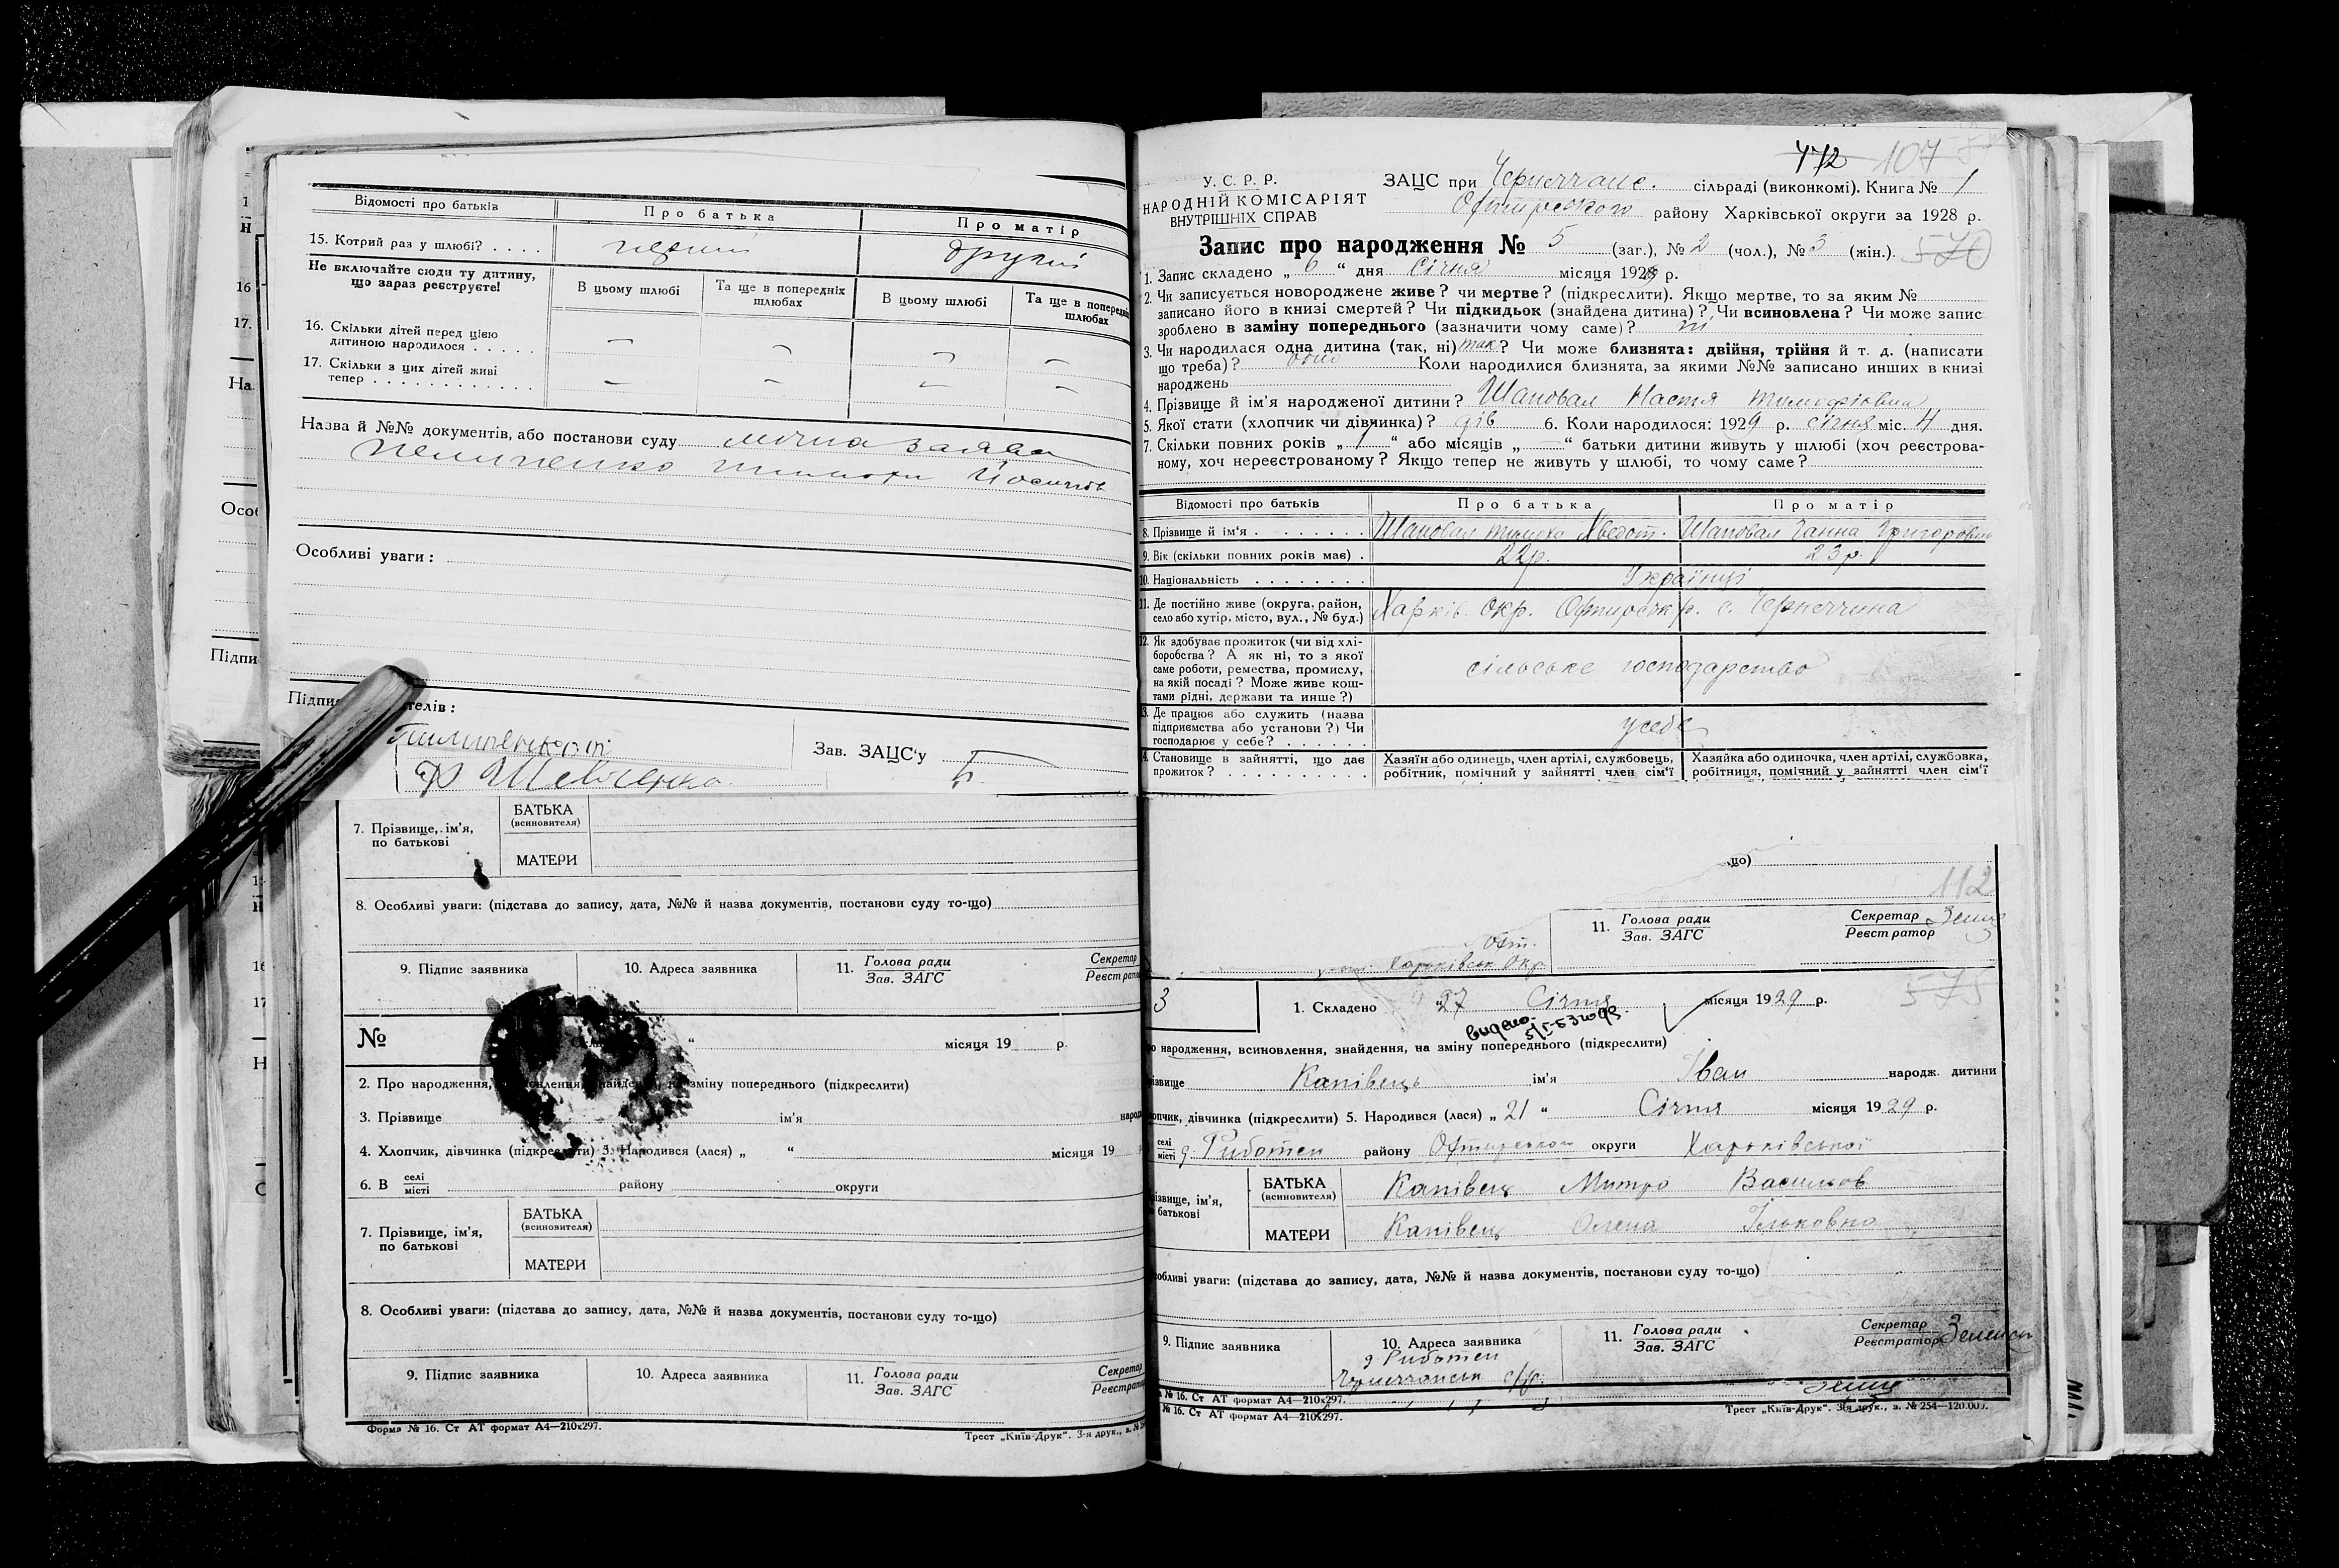 Відомості про батьків
Про батька
Про матір
15. Котрий раз у шлюбі? ....
перший
другий
Не включайте сюди ту дитину, що зараз реєструєте!
В цьому шлюбі
Та ще в попередніх шлюбах
В цьому шлюбі
Та ще в попередніх шлюбах
16. Скільки дітей перед цією дитиною народилося .....
— — — —
17. Скільки з цих дітей живі тепер ............
— — — —
Назва й №№ документів, або постанови суду
заява
Особливі уваги:
Підпи
телів:
Шевченко.
Зав. ЗАЦС'у
7. Прізвище, ім'я, по батькові
БАТЬКА
(всиновителя)
МАТЕРИ
8. Особливі уваги: (підстава до запису, дата, №№ й назва документів, постанови суду то-що)
9. Підпис заявника
10. Адреса заявника
11. Голова ради
Зав. ЗАГС
Секретар
Реєстратор
№
місяця 19 р.
2. Про народження, зміну попереднього (підкреслити)
3. Прізвище
ім'я
народ
4. Хлопчик, дівчинка (підкреслити) 5. Народився (лася) „ “
місяця 19
6. В селі
місті
району
округи
7. Прізвище, ім'я, по батькові
БАТЬКА
(всиновителя)
МАТЕРИ
8. Особливі уваги: (підстава до запису, дата, №№ й назва документів, постанови суду то-що)
9. Підпис заявника
10. Адреса заявника
11. Голова ради
Зав. ЗАГС
Секретар
Реєстра
Форма № 16. Ст АТ формат А4—210х297.
Трест „Київ-Друк“. 3-я друк., з. №
472 107
У. С. Р. Р.
НАРОДНІЙ КОМІСАРІЯТ
ВНУТРІШНІХ СПРАВ
ЗАЦС при Чернеччане. сільраді (виконкомі). Книга № 1
району Харківської округи за 1928 р.
Запис про народження № 5 (заг.), № 2 (чол.), № 3 (жін.).
570
1. Запис складено „ 6 “ дня Січня місяця 1929 р.
2. Чи записується новороджене живе? чи мертве? (підкреслити). Якщо мертве, то за яким №
записано його в книзі смертей? Чи підкидьок (знайдена дитина)? Чи всиновлена? Чи може запис
зроблено в заміну попереднього (зазначити чому саме)? ні
3. Чи народилася одна дитина (так, ні) так? Чи може близнята: двійня, трійня й т. д. (написати
що треба)? одно Коли народилися близнята, за якими №№ записано инших в книзі
народжень
4. Прізвище й ім'я народженої дитини? Шаповал Настя Тимофіївна
5. Якої стати (хлопчик чи дівчинка)? дів 6. Коли народилося: 1929 р. січня міс. 4 дня.
7. Скільки повних років „ 1 “ або місяців „ — “ батьки дитини живуть у шлюбі (хоч реєстрова-
ному, хоч нереєстрованому? Якщо тепер не живуть у шлюбі, то чому саме?
Відомості про батьків
Про батька
Про матір
8. Прізвище й ім'я .......
Шаповал Тимошка Хведот.
Шаповал Ганна Григоровна
9. Вік (скільки повних років має) .
22р.
23р.
10. Національність ........
Українці
11. Де постійно живе (округа, район, село або хутір, місто, вул., № буд.)
Харків. Окр. Охтирськ р. с. Чернеччина
12. Як здобуває прожиток (чи від хлі-
боробства? А як ні, то з якої
саме роботи, ремества, промислу,
на якій посаді? Може живе кош-
тами рідні, держави та инше?)
сільське господарство
13. Де працює або служить (назва
підприємства або установи?) Чи
господарює у себе? ......
у себе
14. Становище в зайнятті, що дає
прожиток? ..........
Хазяїн або одинець, член артілі, службовець,
робітник, помічний у зайнятті член сім'ї
Хазяйка або одиночка, член артілі, службовка,
робітниця, помічний у зайнятті член сім'ї
що)
112
11. Голова ради
Зав. ЗАГС
Секретар
Реєстратор
Охт.
Харківськ. Окр.
575
3
1. Складено „27 Січня місяця 1929 р.
видено 5/I-53 года.
о народження, всиновлення, знайдення, на зміну попереднього (підкреслити)
ізвище Капівець ім'я Іван народж. дитини
лопчик, дівчинка (підкреслити) 5. Народився (лася) „ 21 “ Січня місяця 1929 р.
селі
місті
д. Риботен району Охтирського округи Харьківської
ізвище, ім'я,
батькові
БАТЬКА
(всиновителя)
Капівець Митро Васильов
МАТЕРИ
Капівець Олена Ільковна
обливі уваги: (підстава до запису, дата, №№ й назва документів, постанови суду то-що)
9. Підпис заявника
10. Адреса заявника
д Риботен
Чернеччанськ с/р.
11. Голова ради
Зав. ЗАГС
Секретар
Реєстратор
№ 16. Ст АТ формат А4—210х297.
№ 16. Ст АТ формат А4—210х297.
Трест „Київ-Друк“. 3-я друк., з. № 254—120.000.